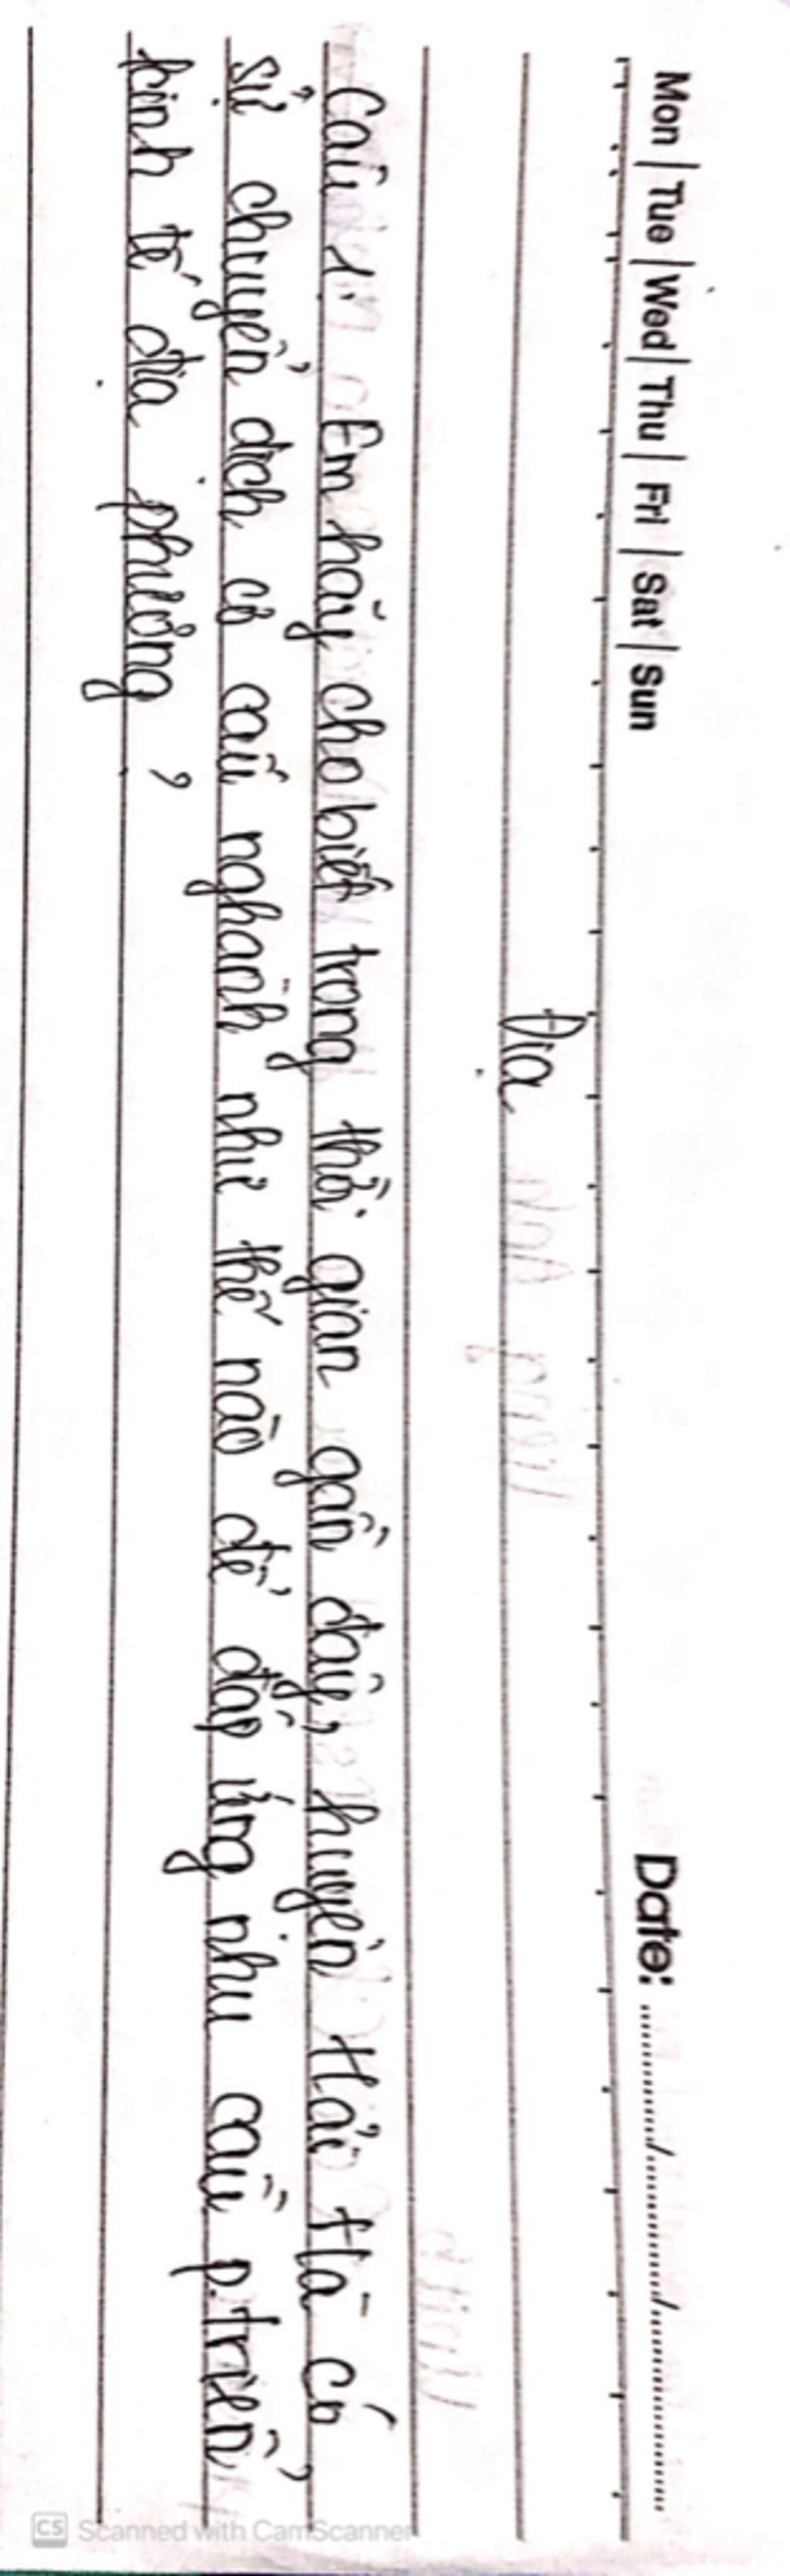 Mon | Tue | Wed | Thu | Fri | Sat | Sun Date: ............/............/............
Địa
Câu 1: Em hãy cho biết trong thời gian gần đây, huyện Hải Hà có
sự chuyển dịch cơ cấu nghành như thế nào để đáp ứng nhu cầu p.triển
kinh tế địa phương ?
CS Scanned with CamScanner